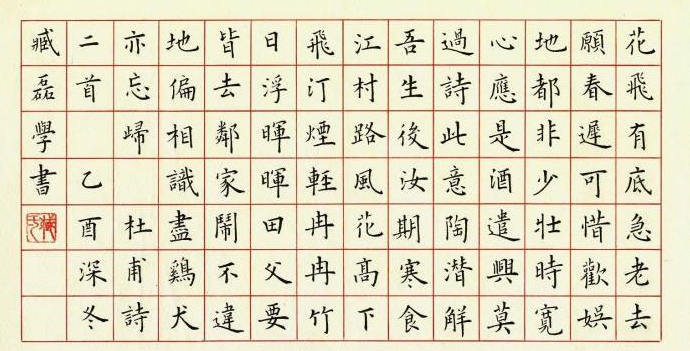 花飛有底急老去
願春遲可惜歡娛
地都非少壯時寬
心應是酒遣興莫
過詩此意陶潛解
吾生後汝期寒食
江村路風花髙下
飛汀煙輕冉冉竹
日浮暉暉田父要
皆去鄰家鬧不違
地偏相識盡鷄犬
亦忘歸 杜甫詩
二首 乙酉深冬
臧磊學書